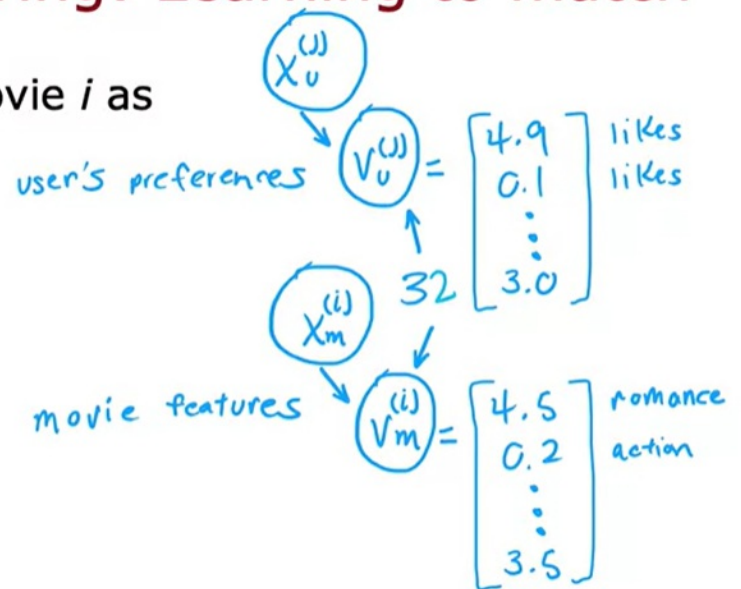 ovie i as
X_u^(j)
user's preferences V_u^(j) = [4.9 likes
0.1 likes
⋮
3.0]
32
X_m^(i)
movie features V_m^(i) = [4.5 romance
0.2 action
⋮
3.5]